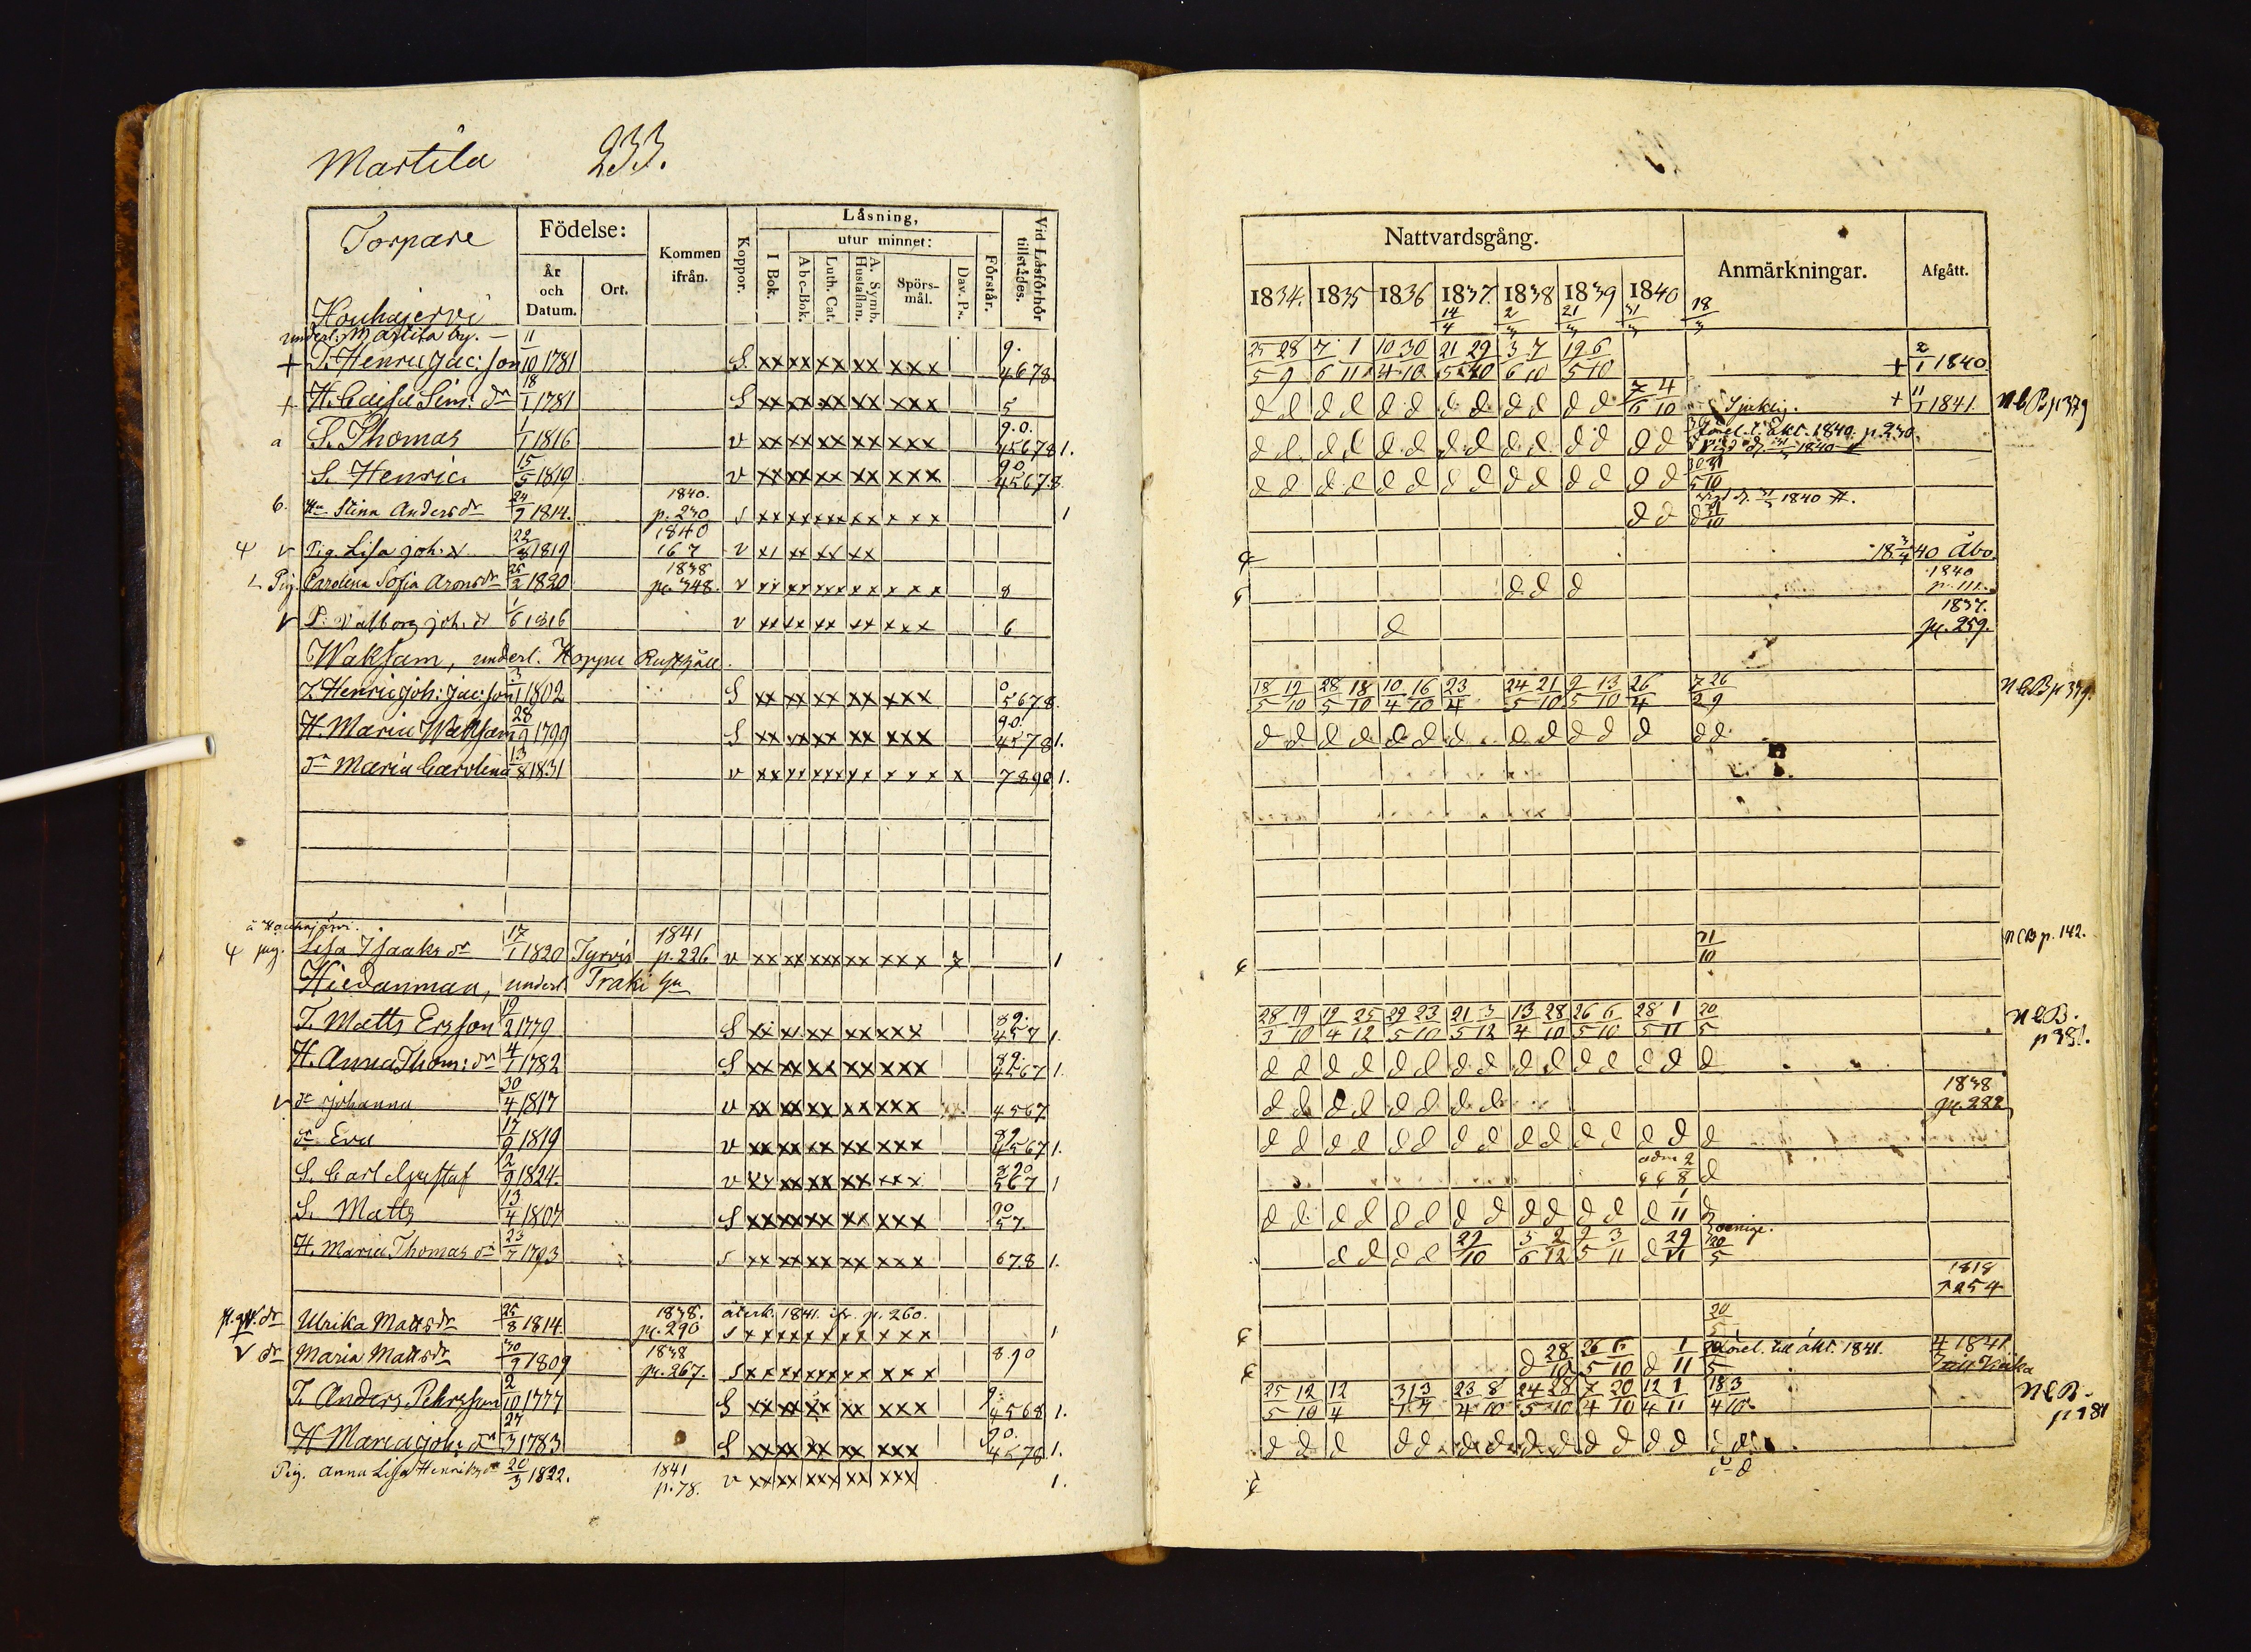 Martila 233.
Torpare Födelse: År och Datum. Ort. Kommen ifrån. Koppor. Låsning, I Bok. utur minnet: Abc-Bok. Luth. Cat. A. Symb. Hustaflan. Spörs-mål. Dav. Ps. Förstår. Vid Låsförhör tillstådes.
Houhajervi
underl. Martila by.
+ T. Henric Jac:son 11/10 1781 S xx xx xx xx xxx 9. 4678.
+ H. Caisa Sim: dr 18/1 1781 S xx xx xx xx xxx 5
a S. Thomas 1/1 1816 v xx xx xx xx xxx 9.0. 45678 1.
S. Henric. 15/5 1819 v xx xx xx xx xxx 90 45678
6. Hu Stina Anders dr 24/9 1814. 1840. p. 230 s xx xx xxx xx x xx 1
v Pig. Lisa Joh. d 22/8 1819 1840 167 v x1 xx xx xx
Pig. Carolina Sofia Arons dr 25/2 1820 1838 pg. 348. v xx xx xxx x x x x x 8
v P. Valborg Joh. d 1/6 1816 v xx xx xx xx xxx 6
Waksam, underl. Hoppu Rusthåll.
T. Henric Joh: Jac:son 3/1 1802 S xx xx xx xx xxx 0 5678.
H. Maria Waksam 28/9 1799 S xx xx xx xx xxx 90. 4578 1.
dr Maria Carolina 13/8 1831 v xx xx xxx xx x x x x 7890 1.
å Houhajärvi.
pig. Lisa Isaaks dr 17/1 1820 Tyrvis 1841 p. 226 v xx xx xxx xx xxx x 1
Hiedanmaa, underl. Traki
T. Matts Ersson 19/2 1779 S xx xx xx xx xxx 89. 457 1.
H. Anna Thom: dr 4/1 1782 S xx xx xx xx xxx 89. 4567 1.
v dr Johanna 30/4 1817 v xx xx xx xx xxx 4567
dr Eva 17/9 1819 v xx xx xx xx xxx 89 4567 1.
S. Carl Gustaf 2/9 1824. v xx xx xx xx xxx 890 567 1
S. Matts 13/4 1807 S xx xx xx xx xxx 90 57.
H. Maria Thomas dr 23/7 1793 s xx xx xx xx xxx 678 1.
dr Ulrika Matts dr 25/8 1814 1838. pg. 290 återk. 1841. fr. p. 260. s x x x x x x x x x x 1
v dr Maria Matts dr 30/9 1809 1838 pg. 267. s x x x x x x x x x x 890
T. Anders Pehrsson 2/10 1777 S xx xx xx xx xxx 9. 4568 1.
H Maria Joh: dr 27/3 1783 S xx xx xx xx xxx 90. 4678 1.
Pig. Anna Lisa Henriks dr 20/3 1822. 1841 p. 78. v xx xx xxx xx xxx 1.
Nattvardsgång. Anmärkningar. Afgått.
1834. 1835 1836 1837. 1838 1839 1840
14/4 2/3 21/3 31/3 18/3
25/5 28/9 7/6 1/11 10/4 30/10 21/5 29/10 3/6 7/10 19/5 6/10 + 2/1 1840.
d d d d d d d d d d d d 7/6 4/10 Sjuklig. + 11/1 1841. NCB p 379
d d d d d d d d d d d d d d 1840. p. 230.
d d d d d d d d d d d d d d 30/5 31/10
d d 31/10 1840
18 3/4 40 Åbo
d d d 1840 p. 111.
d 1837. pg. 259.
18/5 19/10 28/5 18/10 10/4 16/10 23/4 24/5 21/10 9/5 13/10 26/4 7/2 26/9 NCB p 379.
d d d d d d d d d d d d d d
31/10 NCB p. 142.
28/3 19/10 12/4 25/12 29/5 23/10 21/5 3/12 13/4 28/10 26/5 6/10 28/5 1/11 20/5 NCB. p 381.
d d d d d d d d d d d d d d d
d d d d d d d d 1838 pg. 282
d d d d d d d d d d d d d d d
adm 2/8 d
d d d d d d d d d d d d d 1/11 d
d d d d 29/10 5/6 2/12 9/5 3/11 d 29/11 20/5
254
20/5
d 28/10 26/5 6/10 d 1/11 20/5 till äkt. 1841. 1841
25/5 12/10 12/4 31/ 3/ 23/4 8/10 24/5 28/10 7/4 20/10 12/4 1/11 18/4 3/10 NCB. p 381
d d d d d d d d d d d d d d d
d